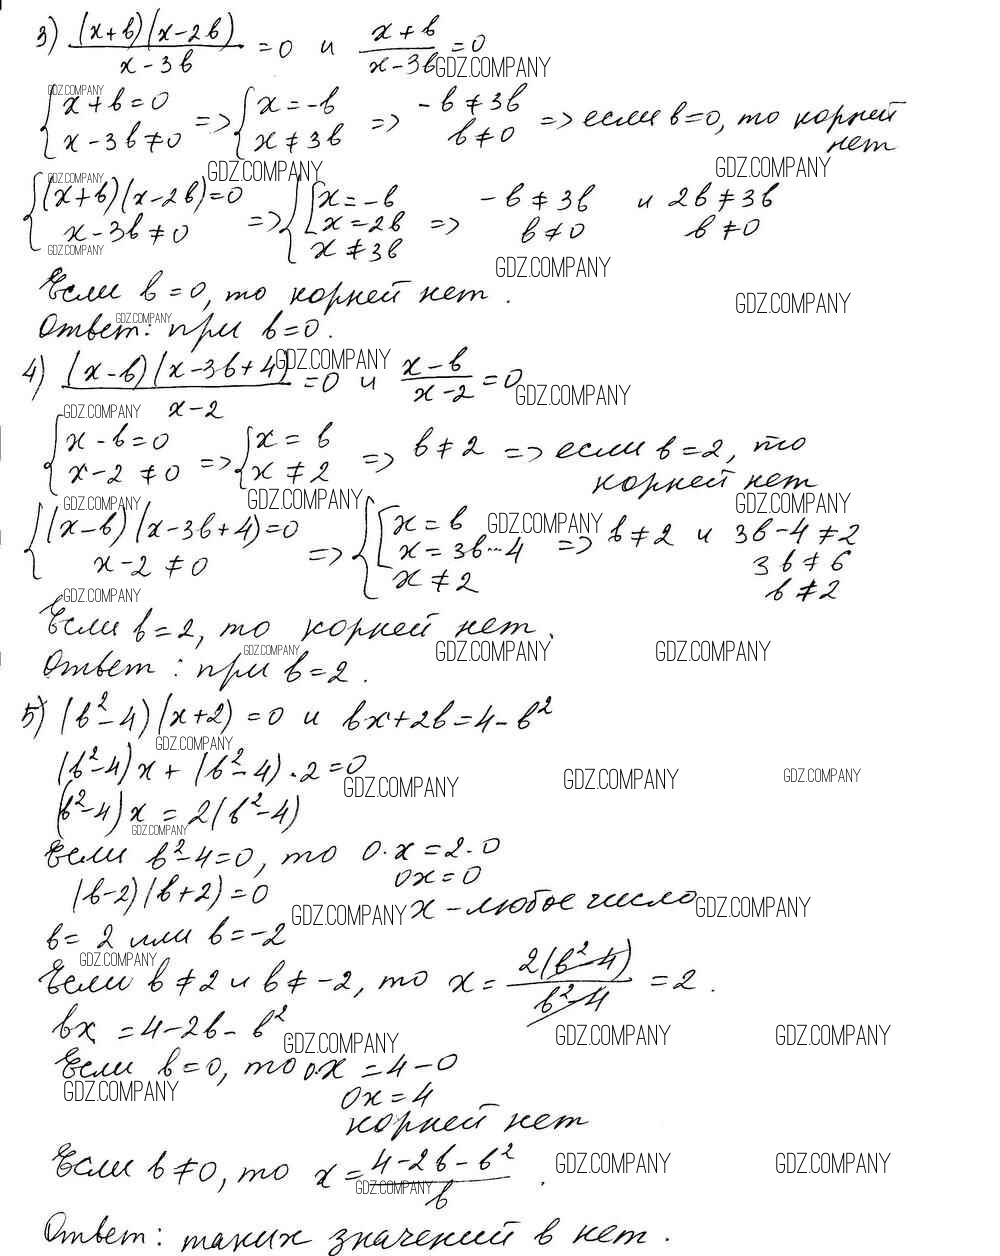 3) (x+b)(x-2b)/(x-3b) = 0 и (x+b)/(x-3b) = 0
GDZ.COMPANY
GDZ.COMPANY
{x+b=0; x-3b≠0 => {x=-b; x≠3b => -b≠3b; b≠0 => если b=0, то корней нет
GDZ.COMPANY GDZ.COMPANY
GDZ.COMPANY
{(x+b)(x-2b)=0; x-3b≠0 => {[x=-b; x=2b; x≠3b => -b≠3b; b≠0 и 2b≠3b; b≠0
GDZ.COMPANY
GDZ.COMPANY
Если b=0, то корней нет.
GDZ.COMPANY
GDZ.COMPANY
Ответ: при b=0.
GDZ.COMPANY
4) (x-b)(x-3b+4)/(x-2) = 0 и (x-b)/(x-2) = 0
GDZ.COMPANY
GDZ.COMPANY
{x-b=0; x-2≠0 => {x=b; x≠2 => b≠2 => если b=2, то корней нет
GDZ.COMPANY GDZ.COMPANY GDZ.COMPANY
{(x-b)(x-3b+4)=0; x-2≠0 => {[x=b; x=3b-4; x≠2 => b≠2 и 3b-4≠2; 3b≠6; b≠2
GDZ.COMPANY
GDZ.COMPANY
Если b=2, то корней нет.
GDZ.COMPANY GDZ.COMPANY GDZ.COMPANY
Ответ: при b=2.
5) (b²-4)(x+2)=0 и bx+2b=4-b²
GDZ.COMPANY
(b²-4)x+(b²-4)·2=0
GDZ.COMPANY GDZ.COMPANY GDZ.COMPANY
(b²-4)x=2(b²-4)
GDZ.COMPANY
Если b²-4=0, то 0·x=2·0
(b-2)(b+2)=0 0x=0
GDZ.COMPANY x-любое число GDZ.COMPANY
b=2 или b=-2
GDZ.COMPANY
Если b≠2 и b≠-2, то x=2(b²-4)/(b²-4)=2.
bx=4-2b-b²
GDZ.COMPANY GDZ.COMPANY GDZ.COMPANY
Если b=0, то 0x=4-0
GDZ.COMPANY
0x=4
корней нет
Если b≠0, то x=(4-2b-b²)/b.
GDZ.COMPANY GDZ.COMPANY
GDZ.COMPANY
Ответ: таких значений b нет.